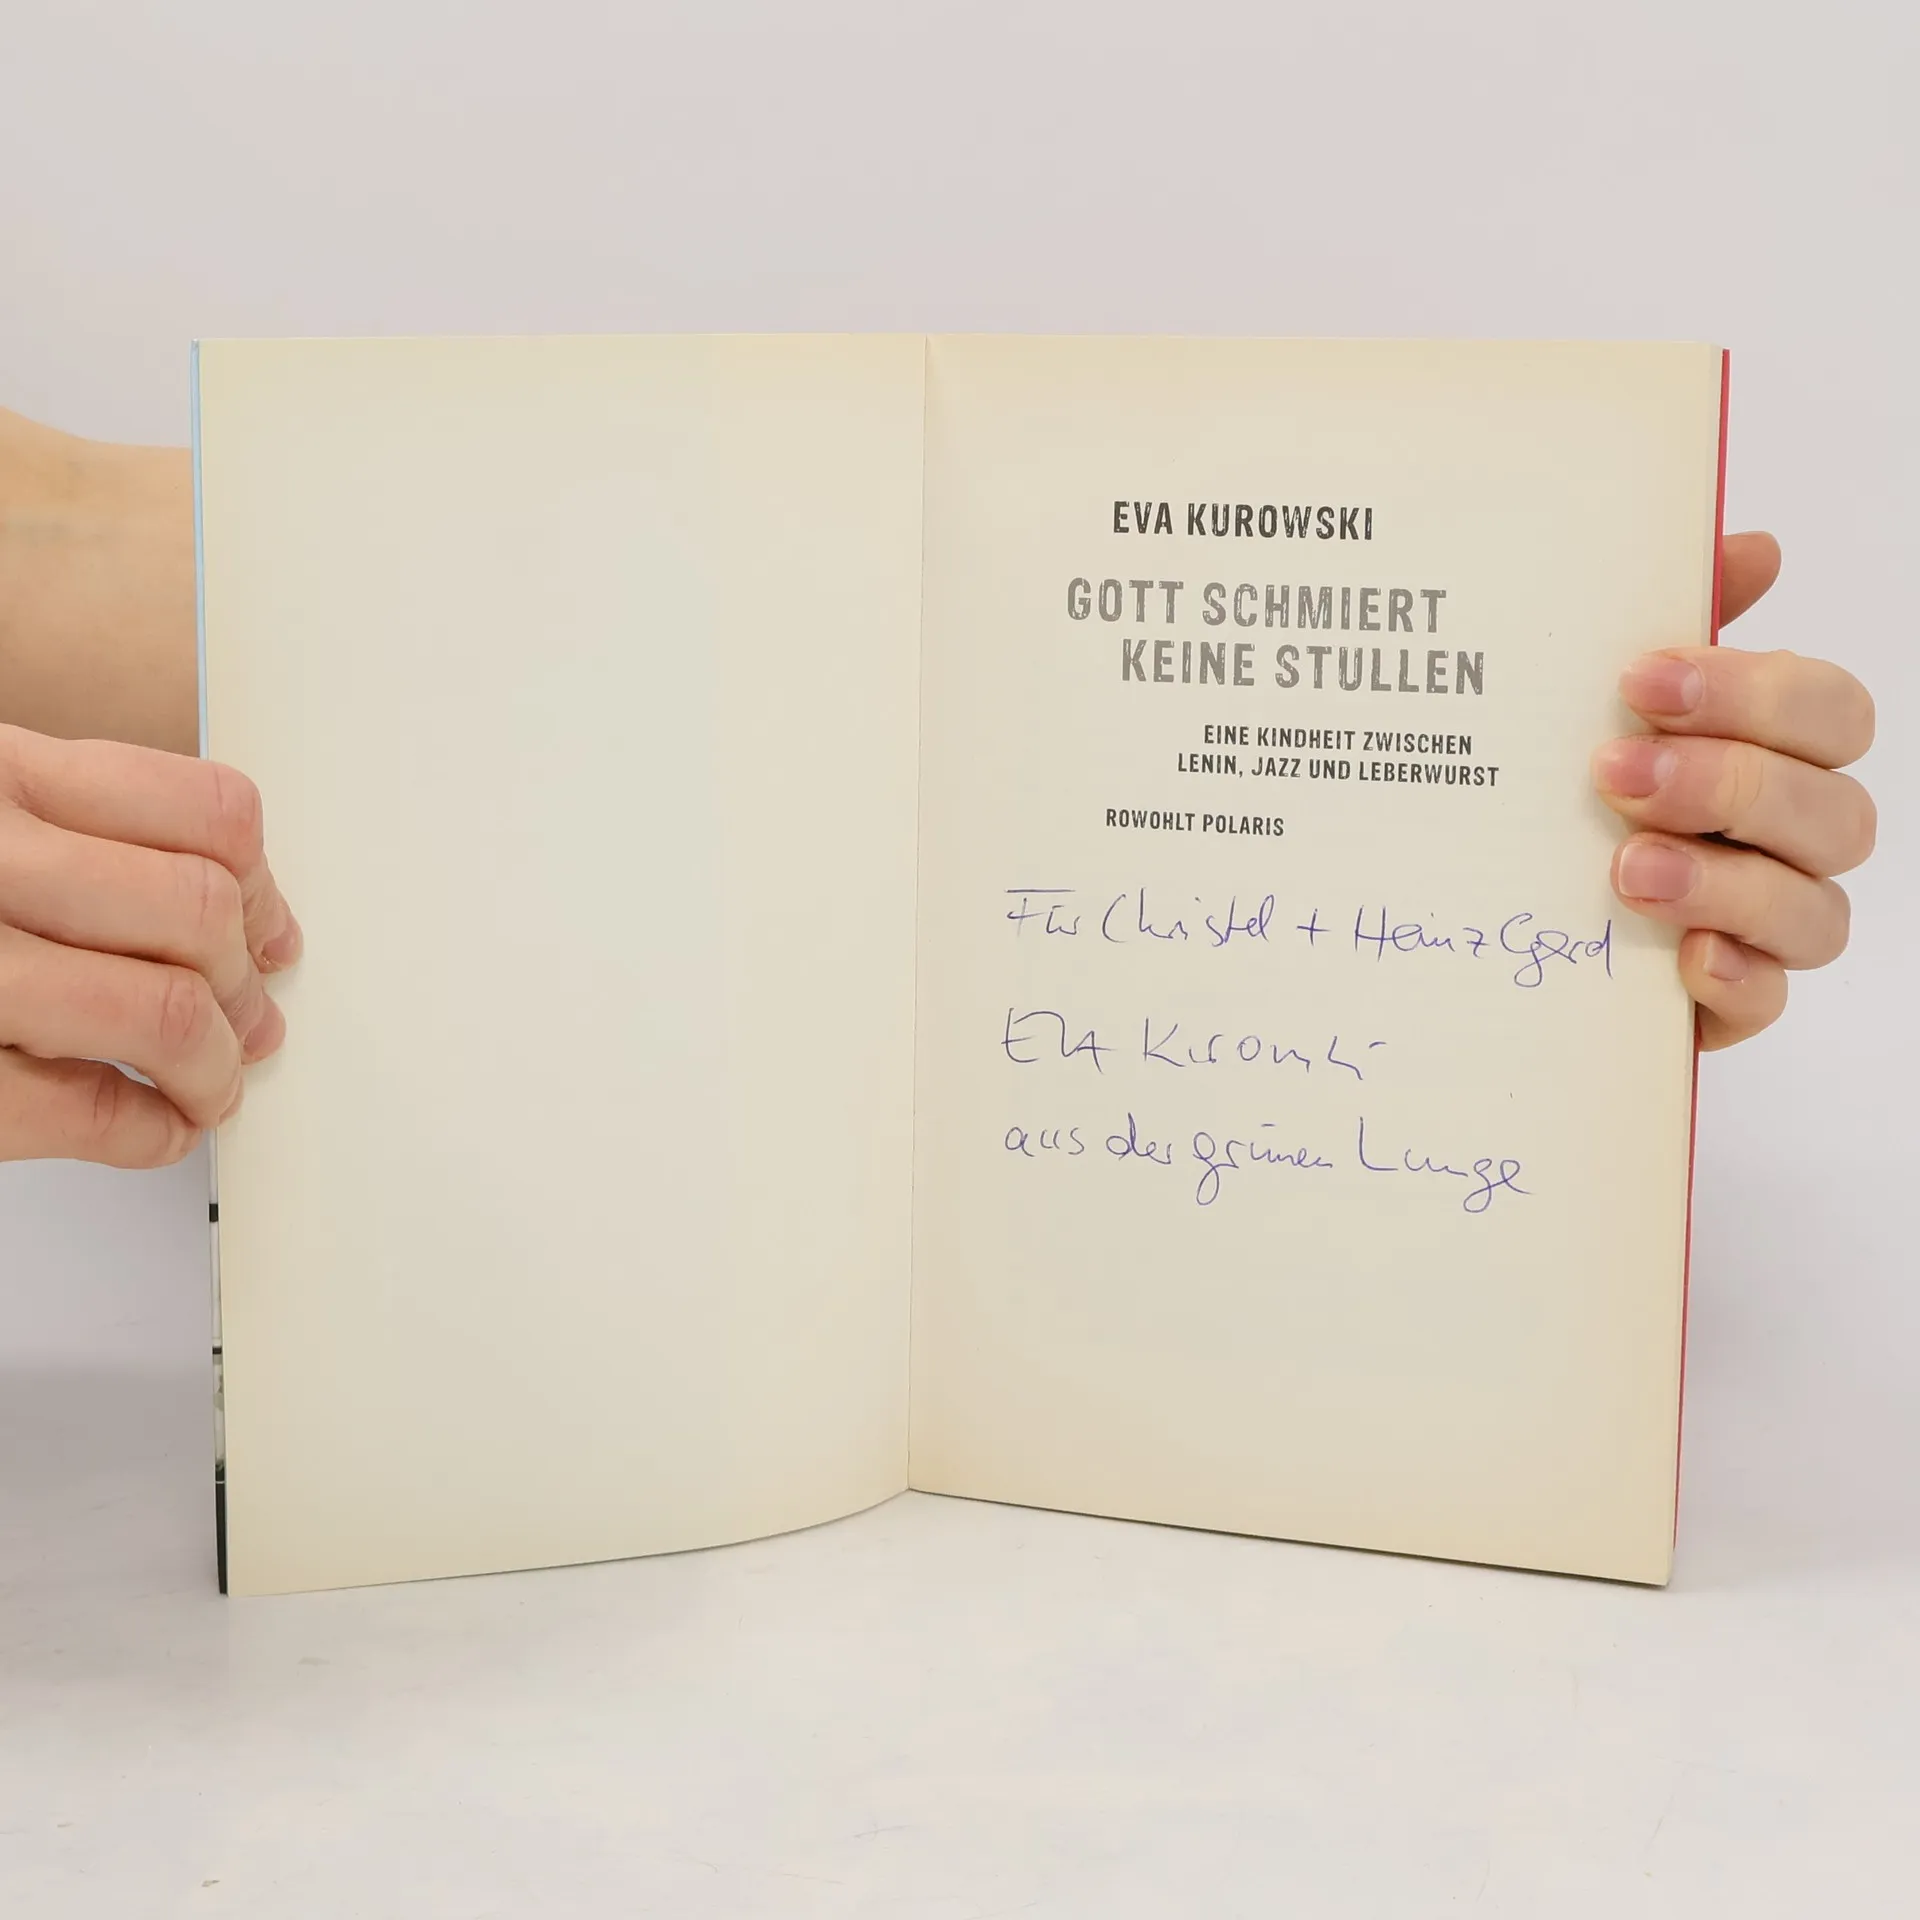 EVA KUROWSKI
GOTT SCHMIERT
KEINE STULLEN
EINE KINDHEIT ZWISCHEN
LENIN, JAZZ UND LEBERWURST
ROWOHLT POLARIS
Für Christel + Heinz Gerd
EVA Kurowski
aus der grünen Lunge